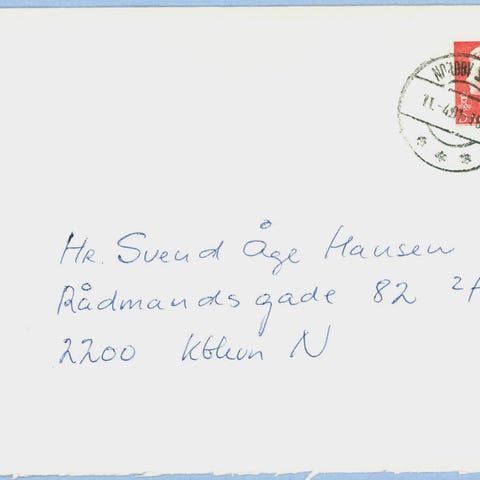 NORDBY S
11.-4.81.-18
Hr. Svend Åge Hansen
Rådmandsgade 82 2
2200 Kbhvn N